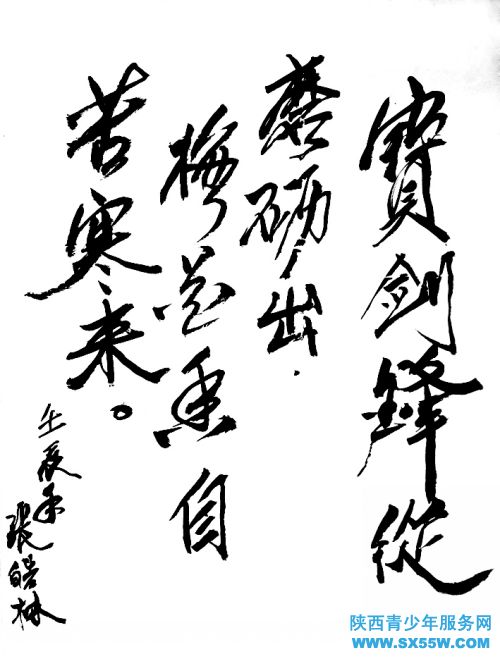 寶劍鋒從
磨砺出.
梅花香自
苦寒来。
壬辰年
張皓林
陕西青少年服务网
WWW.SX55W.COM